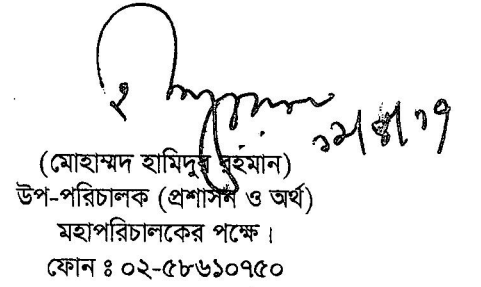 (মোহাম্মদ হামিদুর রহমান)
উপ-পরিচালক (প্রশাসন ও অর্থ)
মহাপরিচালকের পক্ষে।
ফোন ঃ ০২-৫৮৬১০৭৫০